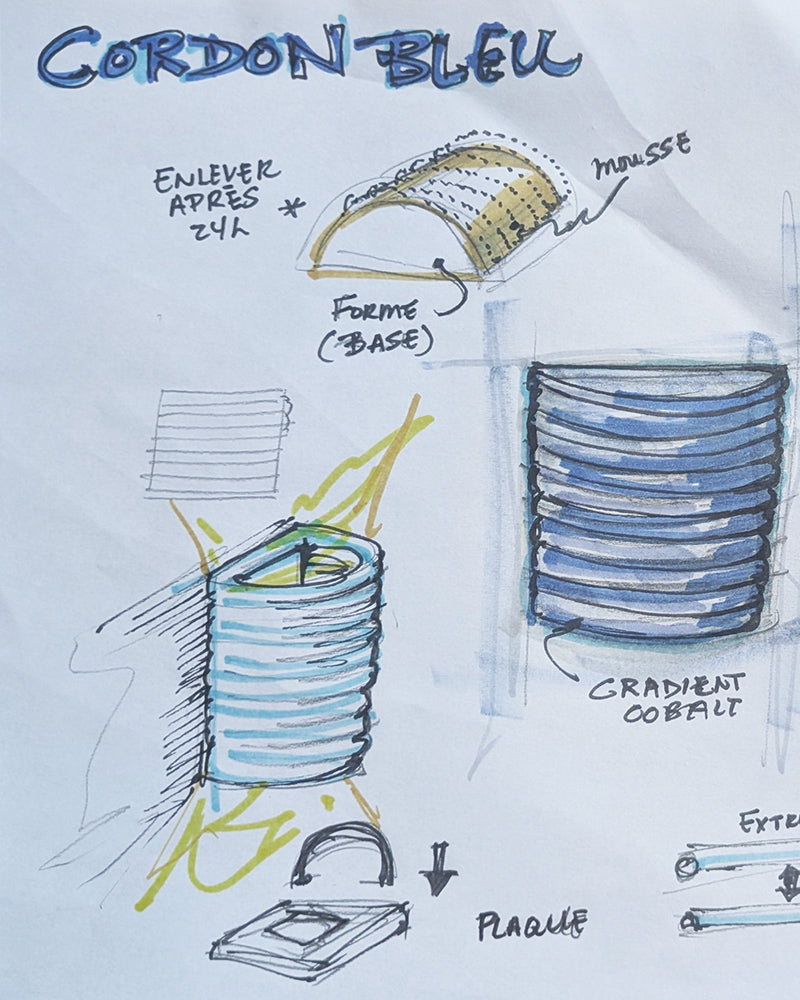 CORDON BLEU
ENLEVER
APRÈS
24h
*
MOUSSE
FORME
(BASE)
GRADIENT
COBALT
EXTR
PLAQUE